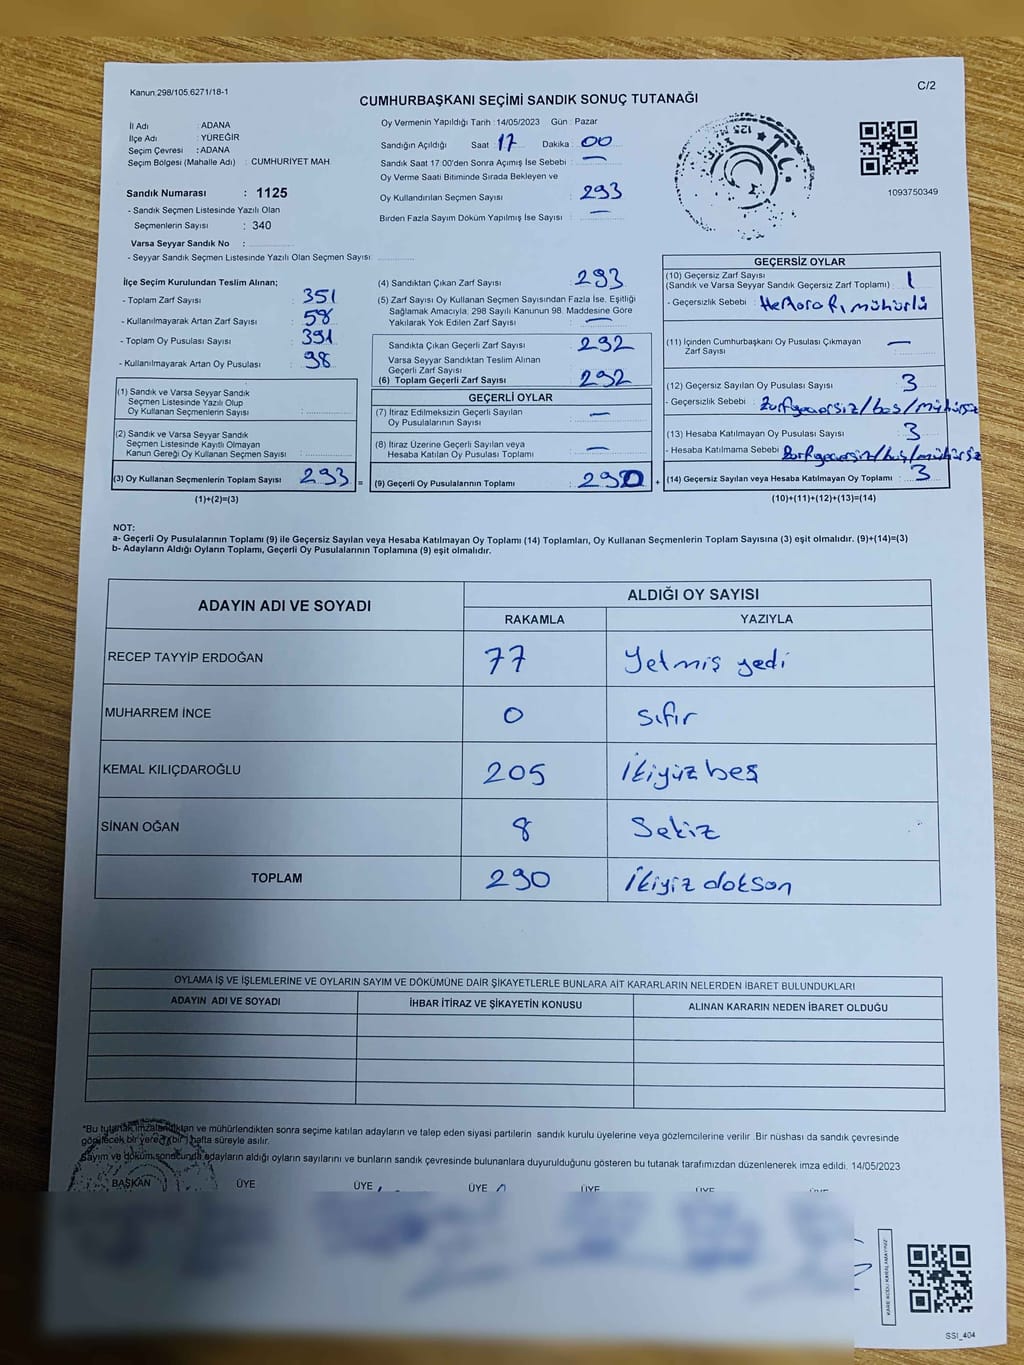 Kanun.298/105.6271/18-1
C/2
CUMHURBAŞKANI SEÇİMİ SANDIK SONUÇ TUTANAĞI
İl Adı : ADANA
İlçe Adı : YÜREĞİR
Seçim Çevresi : ADANA
Seçim Bölgesi (Mahalle Adı) : CUMHURİYET MAH.
Sandık Numarası : 1125
- Sandık Seçmen Listesinde Yazılı Olan
Seçmenlerin Sayısı : 340
Varsa Seyyar Sandık No :
- Seyyar Sandık Seçmen Listesinde Yazılı Olan Seçmen Sayısı:
Oy Vermenin Yapıldığı Tarih :14/05/2023 Gün : Pazar
Sandığın Açıldığı Saat : 17 Dakika : 00
Sandık Saat 17:00'den Sonra Açımış İse Sebebi : —
Oy Verme Saati Bitiminde Sırada Bekleyen ve
Oy Kullandırılan Seçmen Sayısı : 293
Birden Fazla Sayım Döküm Yapılmış İse Sayısı : —
T.C.
1125
1093750349
İlçe Seçim Kurulundan Teslim Alınan;
- Toplam Zarf Sayısı : 351
- Kullanılmayarak Artan Zarf Sayısı : 58
- Toplam Oy Pusulası Sayısı : 391
- Kullanılmayarak Artan Oy Pusulası : 98
(1) Sandık ve Varsa Seyyar Sandık
Seçmen Listesinde Yazılı Olup
Oy Kullanan Seçmenlerin Sayısı :
(2) Sandık ve Varsa Seyyar Sandık
Seçmen Listesinde Kayıtlı Olmayan
Kanun Gereği Oy Kullanan Seçmen Sayısı :
(3) Oy Kullanan Seçmenlerin Toplam Sayısı : 293 =
(1)+(2)=(3)
(4) Sandıktan Çıkan Zarf Sayısı : 293
(5) Zarf Sayısı Oy Kullanan Seçmen Sayısından Fazla İse, Eşitliği
Sağlamak Amacıyla, 298 Sayılı Kanunun 98. Maddesine Göre
Yakılarak Yok Edilen Zarf Sayısı : —
Sandıkta Çıkan Geçerli Zarf Sayısı : 292
Varsa Seyyar Sandıktan Teslim Alınan
Geçerli Zarf Sayısı :
(6) Toplam Geçerli Zarf Sayısı : 292
GEÇERLİ OYLAR
(7) İtiraz Edilmeksizin Geçerli Sayılan
Oy Pusulalarının Sayısı : —
(8) İtiraz Üzerine Geçerli Sayılan veya
Hesaba Katılan Oy Pusulası Toplamı : —
(9) Geçerli Oy Pusulalarının Toplamı : 290 +
GEÇERSİZ OYLAR
(10) Geçersiz Zarf Sayısı
(Sandık ve Varsa Seyyar Sandık Geçersiz Zarf Toplamı) : 1
- Geçersizlik Sebebi : mühürlü
(11) İçinden Cumhurbaşkanı Oy Pusulası Çıkmayan
Zarf Sayısı : —
(12) Geçersiz Sayılan Oy Pusulası Sayısı : 3
- Geçersizlik Sebebi : Zarfgeçersiz/boş/mühürsüz
(13) Hesaba Katılmayan Oy Pusulası Sayısı : 3
- Hesaba Katılmama Sebebi : Zarfgeçersiz/boş/mühürsüz
(14) Geçersiz Sayılan veya Hesaba Katılmayan Oy Toplamı : 3
(10)+(11)+(12)+(13)=(14)
NOT:
a- Geçerli Oy Pusulalarının Toplamı (9) ile Geçersiz Sayılan veya Hesaba Katılmayan Oy Toplamı (14) Toplamları, Oy Kullanan Seçmenlerin Toplam Sayısına (3) eşit olmalıdır. (9)+(14)=(3)
b- Adayların Aldığı Oyların Toplamı, Geçerli Oy Pusulalarının Toplamına (9) eşit olmalıdır.
ADAYIN ADI VE SOYADI
ALDIĞI OY SAYISI
RAKAMLA YAZIYLA
RECEP TAYYİP ERDOĞAN 77 Yetmiş yedi
MUHARREM İNCE 0 sıfır
KEMAL KILIÇDAROĞLU 205 İkiyüz beş
SİNAN OĞAN 8 Sekiz
TOPLAM 290 İkiyiz doksan
OYLAMA İŞ VE İŞLEMLERİNE VE OYLARIN SAYIM VE DÖKÜMÜNE DAİR ŞİKAYETLERLE BUNLARA AİT KARARLARIN NELERDEN İBARET BULUNDUKLARI
ADAYIN ADI VE SOYADI İHBAR İTİRAZ VE ŞİKAYETİN KONUSU ALINAN KARARIN NEDEN İBARET OLDUĞU
*Bu tutanak imzalandıktan ve mühürlendikten sonra seçime katılan adayların ve talep eden siyasi partilerin sandık kurulu üyelerine veya gözlemcilerine verilir. Bir nüshası da sandık çevresinde
görülecek bir yere 7 (bir) hafta süreyle asılır.
Sayım ve döküm sonucunda adayların aldığı oyların sayılarını ve bunların sandık çevresinde bulunanlara duyurulduğunu gösteren bu tutanak tarafımızdan düzenlenerek imza edildi. 14/05/2023
BAŞKAN ÜYE ÜYE ÜYE ÜYE ÜYE ÜYE
KARE KODU KARALAMAYINIZ!
SSI_404